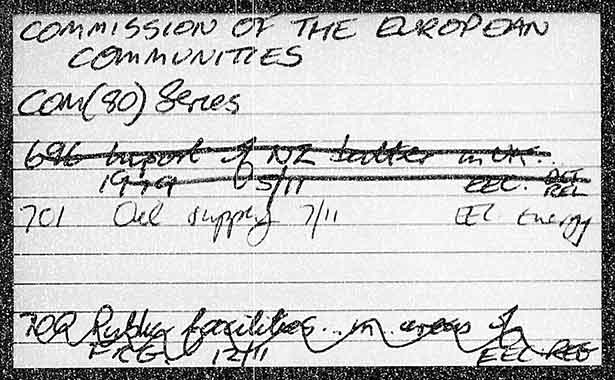 COMMISSION OF THE EUROPEAN
COMMUNITIES
COM(80) Series
696 Import of NZ butter in UK..
1979 5/11 EEC. REL
701 Oil supply 7/11 EEC Energy
702 Public facilities.. in areas of
F.R.G. 12/11 EEC. REG